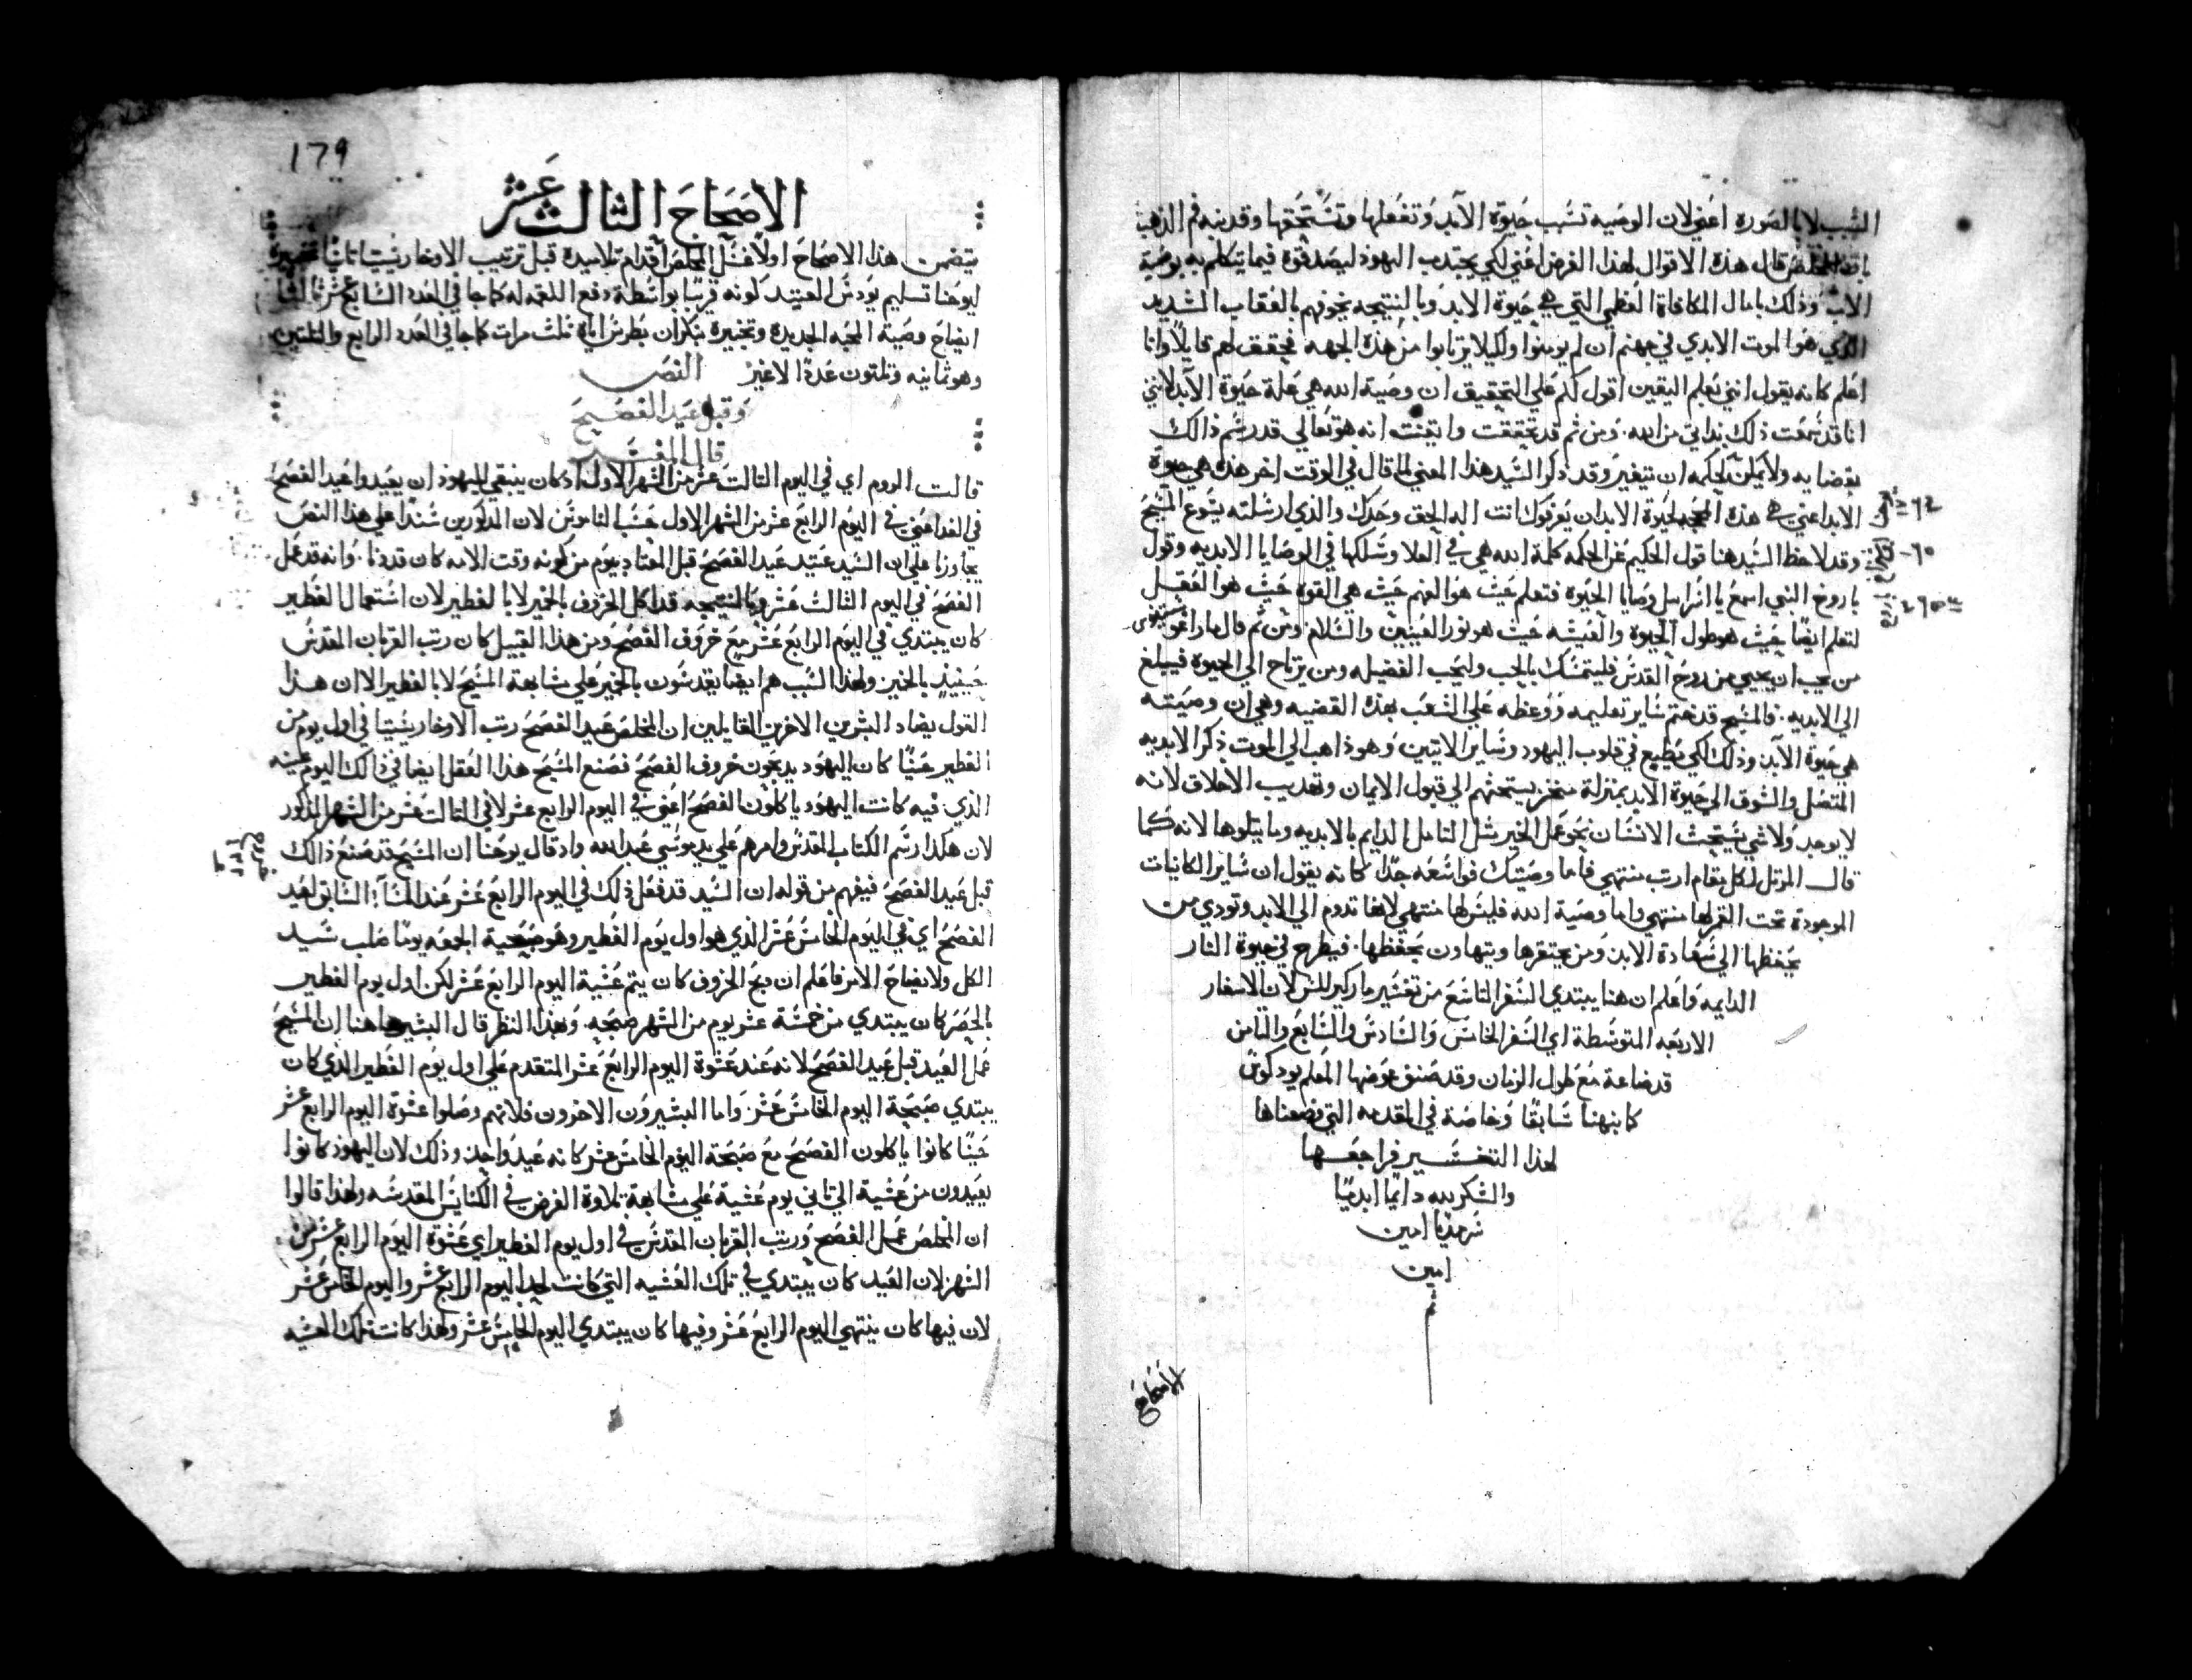 السبب لا بالصوره اعني لان الوصيه تسبب حيوة الابد وتفعلها وتستحقها وقد ينه فم الذهب
باقد المخلص قال هذه الاقوال لهذا الغرض اعني لكي يجتدب اليهود ليصدقوه فيما يتكلم به بوصية
الاب وذلك بامال المكافاة العظمي التي هي حيوة الابد وبالنتيجه يخوفهم بالعقاب الشديد
الذي هو الموت الابدي في جهنم ان لم يومنوا ولكيلا يرتابوا من هذه الجهه فحقق لهم قايلا وانا
اعلم كانه يقول انني نعلم اليقين اقول لكم علي التحقيق ان وصية الله هي علة حيوة الابد لانني
انا قد سمعت ذلك بداتي من الله. ومن ثم قد تحققت وايقنت انه هو تعالي قد رسم ذالك
بقضايه ولا يمكن لحكمه ان يتغير وقد ذكر السيد هذا المعني لما قال في الوقت اخر هذه هي حيوة
الابد اعني هي هذه المحجه لحيوة الابد ان يعرفوك انت اله الحق وحدك والذي ارسلته يسوع المسيح
وقد لاحظ السيد هنا قول الحكيم عن الحكمه كلمة الله هي في العلا وتسلكها في الوصايا الابديه وقول
باروخ النبي اسمع يا اسراييل وصايا الحيوة فتعلم حيث هو الفهم حيث هي القوه حيث هو العقل
لتعلم ايضا حيث هو طول الحيوة والعيشه حيث هو نور العينين والسلام ومن ثم قال مار اغوسطينوس
من يحب ان يحيي من روح القدس فليتمسك بالحب وليحب الفضيله ومن يرتاح الي الحيوة فيبلغ
الي الابديه. فالمسيح قد ختم ساير تعليمه ووعظه علي الشعب بهذه القضيه وهي ان وصيته
هي حيوة الابد وذلك لكي يطبع في قلوب اليهود وساير الاتيين وهو ذاهب الي الموت ذكر الابديه
المتصل والشوق الي حيوة الابد بمنزلة منخز يستحثهم الي قبول الايمان وتهديب الاخلاق لانه
لا يوجد ولا شي يستحث الانسان نحو عمل الخير مثل التامل الدايم بالابديه وما يتلوها لانه كما
قال المرتل لكل مقام ارتب منتهي فاما وصيتك فواسعه جدا كانه يقول ان ساير الكاينات
الموجودة تحت القمر لها منتهي واما وصية الله فليس لها منتهي لانها تدوم الي الابد وتودي من
يحفظها الي سعادة الابد ومن يحتقرها ويتهاون بحفظها. فيطرح في حيوة النار
الدايمه واعلم ان هنا يبتدي السفر التاسع من تفسير مار كيرللس لان الاسفار
الاربعه المتوسطة اي السفر الخامس والسادس والسابع والثامن
قد ضاعة مع طول الزمان وقد صنف عوضها المعلم يودكوس
كما نبهنا سابقا وخاصة في المقدمه التي وضعناها
لهذا التفسير فراجعها
والشكر لله دايما ابديا
سرمديا امين
امين
الاصحاح
179
الاصحاح الثالث عشر
يتضمن هذا الاصحاح اولا غسل المخلص اقدام تلاميده قبل ترتيب الاوخارستيا ثانيا
ليوحنا تسليم يودس العتيد كونه قريبا بواسطة دفع اللقمه له كما جا في العدد السابع عشر ثالثا
ايضاح وصية المحبه الجديده وتخبيره بنكران بطرس اياه ثلث مرات كما جا في العدد الرابع والثلثين
وهو ثمانيه وثلثون عددا لا غير النص
وقبل عيد الفصح
قال المفسر
قالت الروم اي في اليوم الثالث عشر من الشهر الاول اذ كان ينبغي لليهود ان يعيدوا عيد الفصح
في الغد اعني في اليوم الرابع عشر من الشهر الاول حسب الناموس لان المذكورين سندا علي هذا النص
يجاوزا علي ان السيد عتيد عيد الفصح قبل المعتاد بيوم من كونه وقت الامه كان قد دنا. وانه قد عمل
الفصح في اليوم الثالث عشر وبالنتيجه قد اكل الخروف بالخمير لا بالفطير لان استعمال الفطير
كان يبتدي في اليوم الرابع عشر مع خروف الفصح ومن هذا القبيل كان رتب القربان المقدس
حينيذ بالخمير ولهذا السبب هم ايضا يقدسون بالخمير علي مشابهة المسيح لا بالفطير الا ان هذا
القول يضاد البشيرين الاخرين القايلين ان المخلص عيد الفصح رتب الاوخارستيا في اول يوم من
الفطير حينما كان اليهود يدبحون خروف الفصح فصنع المسيح هذا الفعل ايضا في ذالك اليوم عينه
الذي فيه كانت اليهود ياكلون الفصح اعني في اليوم الرابع عشر لا في الثالث عشر من الشهر المذكور
لان هكذا رسم الكتاب المقدس وامرهم علي يد موسي عبد الله واد قال يوحنا ان المسيح قد صنع ذالك
قبل عيد الفصح فيفهم من قوله ان السيد قد فعل ذلك في اليوم الرابع عشر عند المسآ السابق لعيد
الفصح اي في اليوم الخامس عشر الذي هو اول يوم الفطير وهو صبحية الجمعه يوما صلب سيد
الكل ولايضاح الامر فاعلم ان دبح الخروف كان يتم عشية اليوم الرابع عشر لكن اول يوم الفطير
بالحصر كان يبتدي من خمسة عشر يوم من الشهر صبحه. وبهذا النظر قال البشير هاهنا ان المسيح
عمل العيد قبل عيد الفصح لانه عند عشوة اليوم الرابع عشر المتقدم علي اول يوم الفطير الذي كان
يبتدي صبحة اليوم الخامس عشر. واما البشيرون الاخرون فلانهم وصلوا عشوة اليوم الرابع عشر
حينما كانوا ياكلون الفصح مع صبحة اليوم الخامس عشر كانه عيد واحد وذلك لان اليهود كانوا
يعيدون من عشية الي تاني يوم عشية علي مشابهة تلاوة الفرض في الكنايس المقدسه ولهذا قالوا
ان المخلص عمل الفصح ورتب القربان المقدس في اول يوم الفطير اي عشوة اليوم الرابع عشر من
الشهر لان العيد كان يبتدي في تلك العشيه التي كانت لحد اليوم الرابع عشر واليوم الخامس عشر
لان فيها كان ينتهي اليوم الرابع عشر وفيها كان يبتدي اليوم الخامس عشر ولهذا كانت تلك العشيه